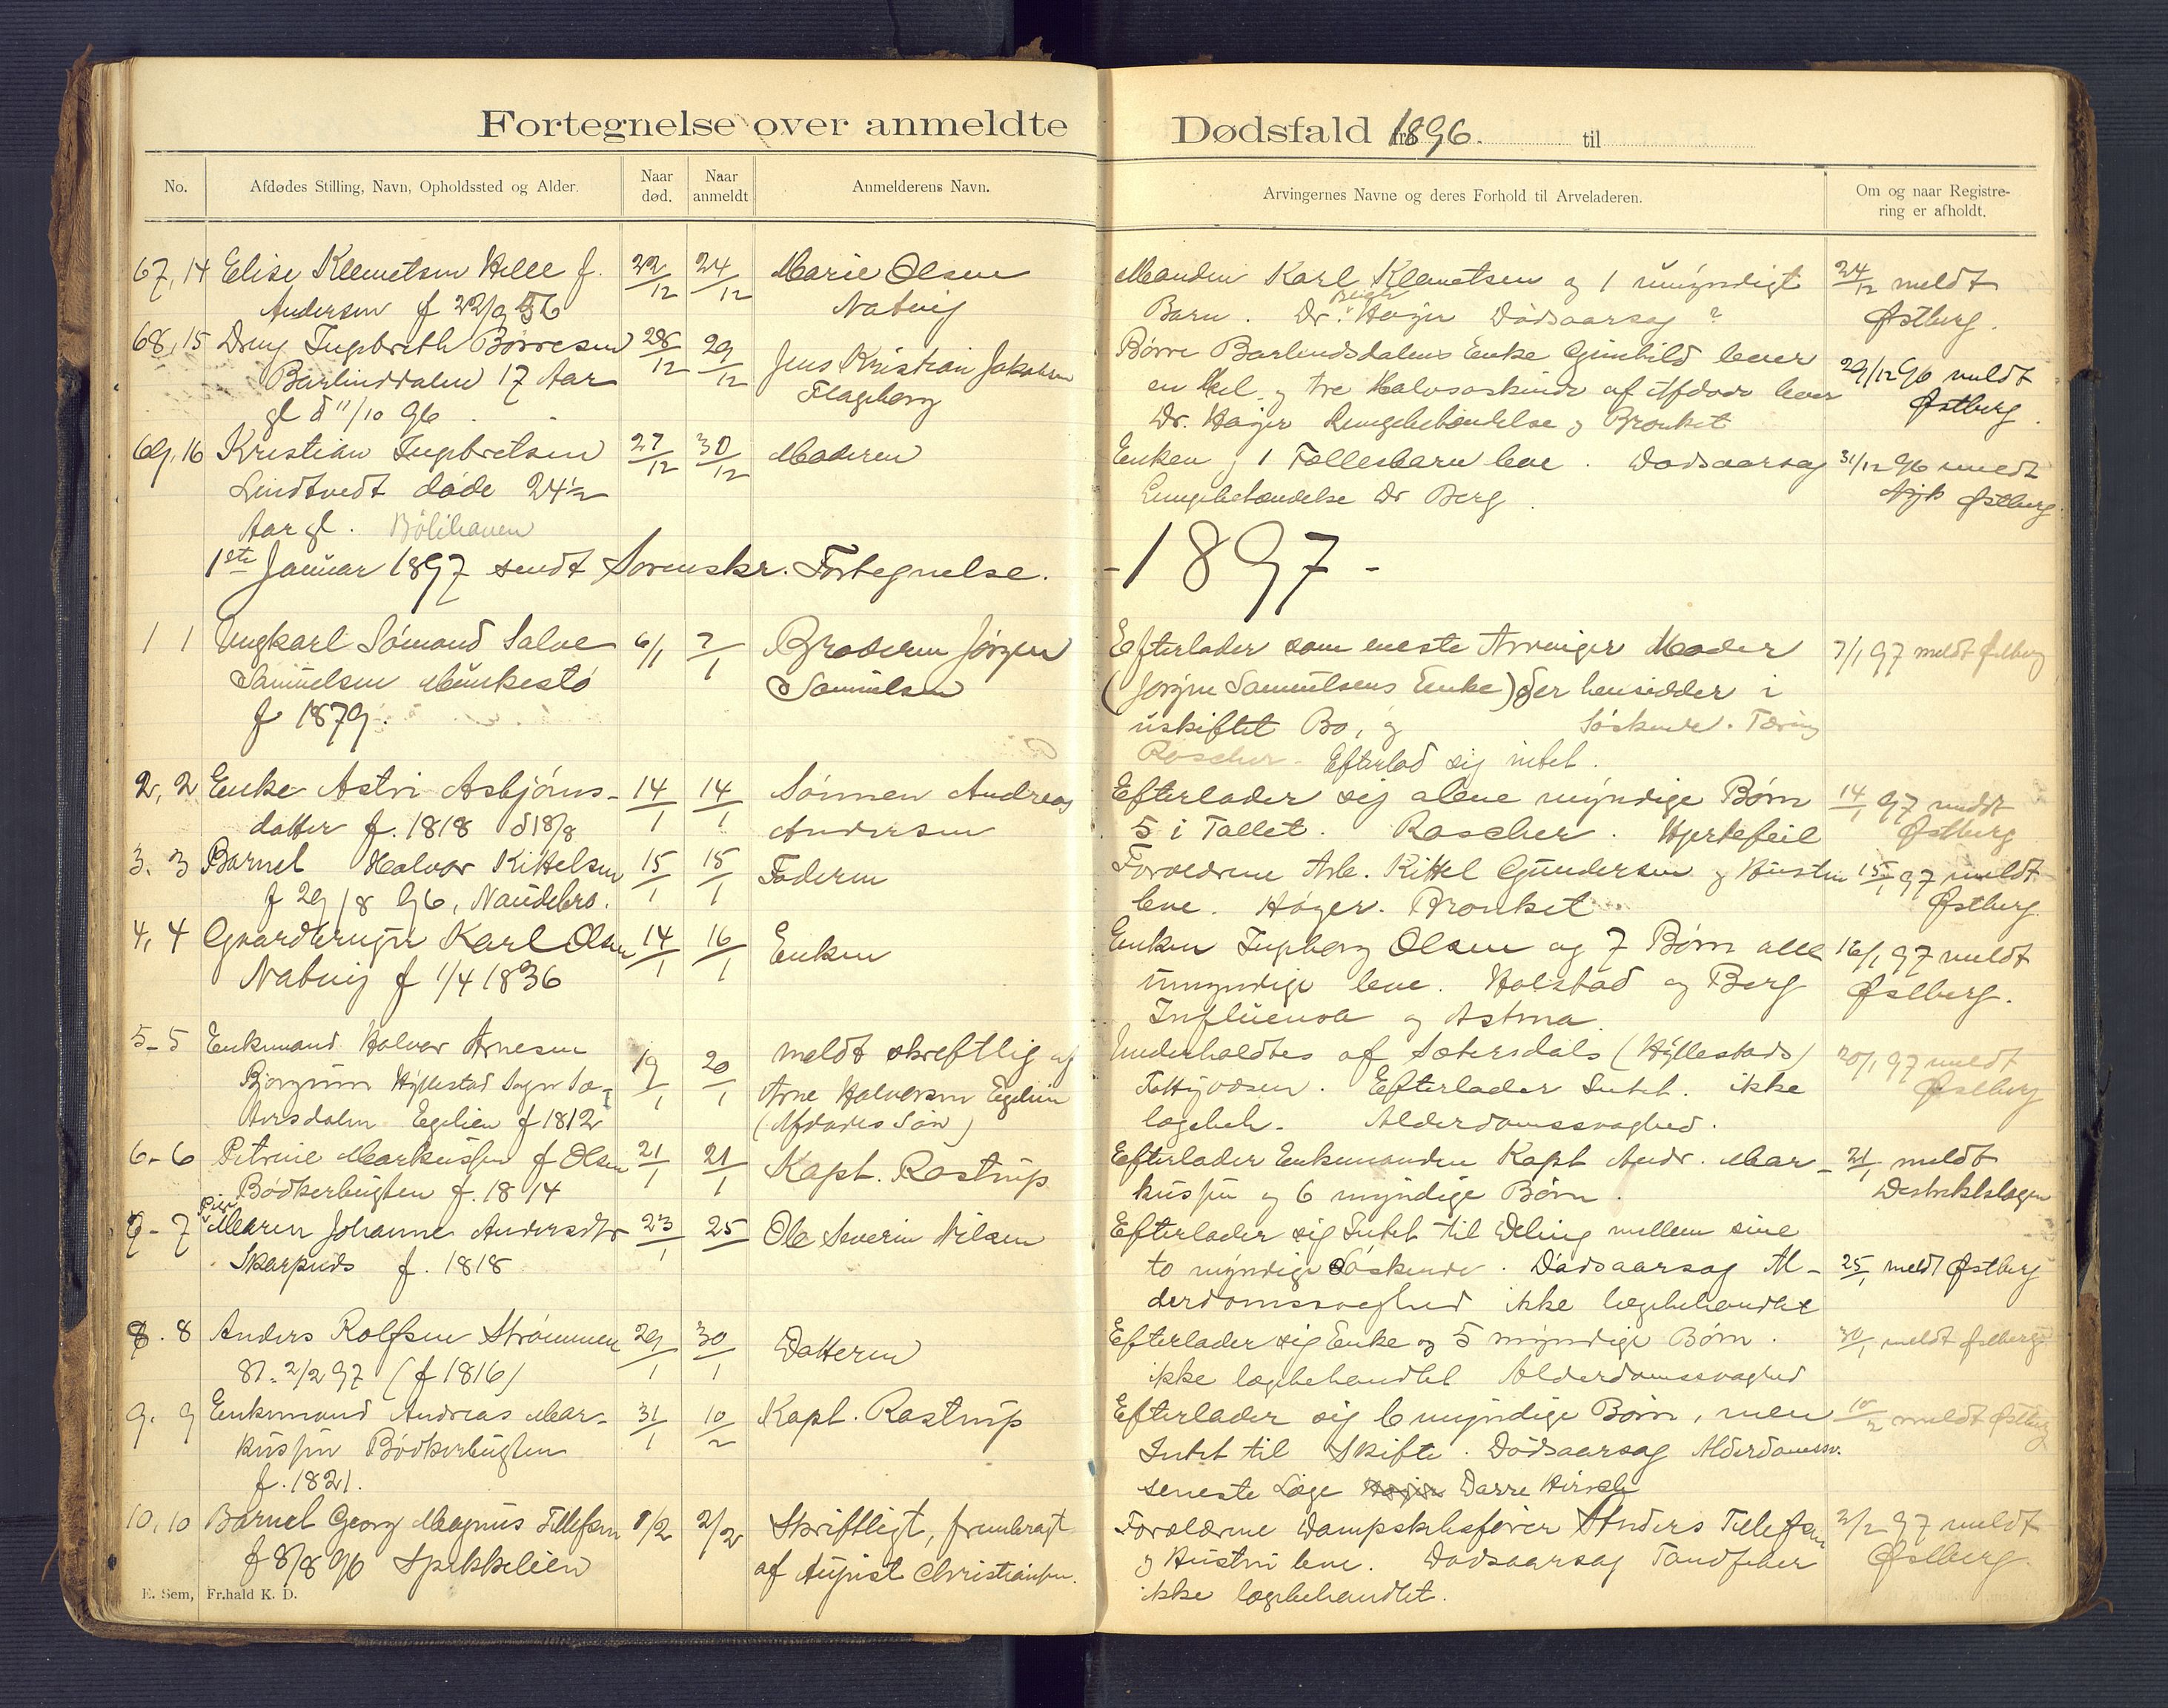 Fortegnelse over anmeldte Dødsfald 1896. til
No. Afdødes Stilling, Navn, Opholdssted og Alder. Naar død. Naar anmeldt Anmelderens Navn.
Arvingernes Navne og deres Forhold til Arveladeren. Om og naar Registrering er afholdt.
67, 14 Elise Klemetsen Helle f. 22/12 24/12 Marie Olsen
Andersen f 22/9 56 Natvig
68, 15 Dreng Ingebreth Børresen 28/12 29/12 Jens Kristian Jakobsen
Barlinddalen 17 Aar Flageborg
gl d 11/10 96
69, 16 Kristian Ingebretsen 27/12 30/12 Moderen
Lindtvedt døde 24½
Aar gl. Bölihaven
1ste Januar 1897 sendt Sorenskr. Fortegnelse.
1 1 Ungkarl Sömand Salve 6/1 7/1 Broderen Jörgen
Samuelsen Munkestö Samuelsen
f 1879.
2, 2 Enke Astri Asbjörns- 14/1 14/1 Sönnen Andreas
datter f. 1818 d 18/8 Andersen
3. 3 Barnet Halvor Kittelsen 15/1 15/1 Faderen
f 29/8 96, Naudebro.
4, 4 Gaardbruger Karl Olsen 14/1 16/1 Enken
Natvig f 1/4 1836
5- 5 Enkemand Halvor Arnesen 19/1 20/1 meldt skreftlig af
Hyllestad Sogn Sæ- Arne Halvorsen Egelien
tersdalen Egelien f 1812 (Afdødes Sön)
6- 6 Petrine Markussen f Olsen 21/1 21/1 Kapt. Rostrup
Bödkerbugten f. 1814
7- 7 Pige Maren Johanne Andersdtr 23/1 25 Ole Severin Nilsen
Skarpnes f. 1818
8. 8 Anders Rolfsen Strömmen 29/1 30/1 Datteren
2/2 97 (f 1816)
9. 9 Enkemand Andreas Mar- 31/1 10/2 Kapt. Rostrup
kussen Bödkerbugten
f. 1821.
10, 10 Barnet Georg Magnus Tellefsen 1/2 2/2 Skriftligt, frembragt
f 8/8 96 Spekkelien af August Christiansen.
E. Sem, Fr.hald K. D.
Manden Karl Klemetsen og 1 umyndigt 24/12 meldt
Barn. Dr. Höyer Dödsaarsag ? Østberg.
Börre Barlindsdalens Enke Gunhild lever
en Hel og tre Halvsöskende af Afdöde lever 29/12 96 meldt
Dr. Höyer Lungebetændelse og Bronket Østberg.
Enken og 1 Fællesbarn leve. Dödsaarsag 31/12 96 meldt
Lungebetændelse Dr Berg. Østberg.
- 1897 -
Efterlader som eneste Arvinger Moder 7/1 97 meldt Østberg
(Jörgen Samuelsens Enke) der hensidder i
uskiftet Bo, og Söskende. Tæring
Roscher. Efterlod sig intet.
Efterlader sig alene myndige Börn 14/1 97 meldt
5 i Tallet. Roscher. Hjertefeil Østberg
Forældrene Arb. Kittel Gundersen og Hustru 15/1 97 meldt
leve. Höyer. Bronket Østberg.
Enken Ingeborg Olsen og 7 Börn alle 16/1 97 meldt
umyndige leve. Holstad og Berg Østberg.
Influensa og Astma.
Underholdtes af Sætersdals (Hyllestads) 20/1 97 meldt
Fattigvæsen. Efterlader Intet. ikke Østberg
lægebeh. Alderdomssvaghed.
Efterlader Enkemanden Kapt Andr. Mar- 21/1 meldt
kussen og 6 myndige Börn. Destriktslægen
Efterlader sig Intet til Deling mellem sine
to myndige Söskende. Dödsaarsag Al- 25/1 meldt Østberg
derdomssvaghed ikke lægebehandlet
Efterlader sig Enke og 5 myndige Börn. 30/1 meldt Østberg
ikke lægebehandlet Alderdomssvaghed
Efterlader sig 6 myndige Börn, men 10/2 meldt Østberg
Intet til Skifte. Dödsaarsag Alderdomssv.
seneste Læge Höyer Darre Hirsch
Forældrene Dampskibsfører Anders Tellefsen 2/2 97 meldt
og Hustru leve. Dödsaarsag Tandfeber Østberg.
ikke lægebehandlet.